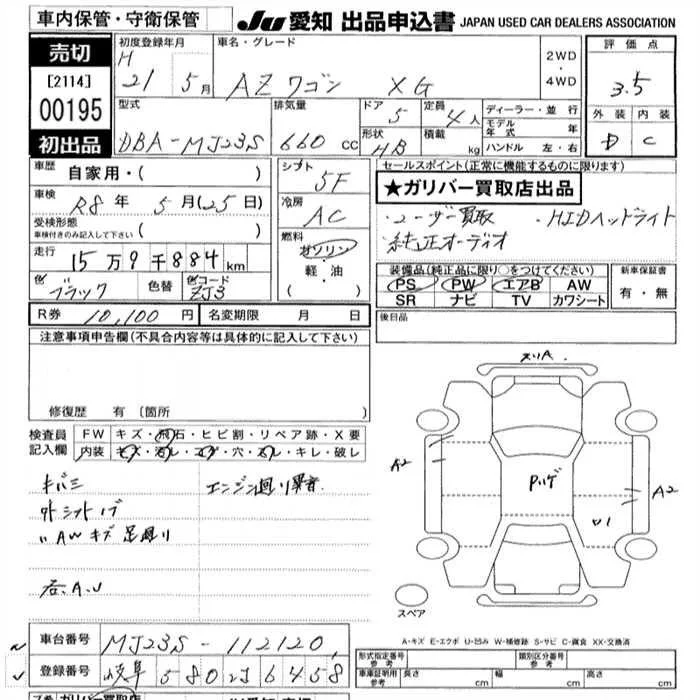 車内保管・守衛保管
JU 愛知 出品申込書 JAPAN USED CAR DEALERS ASSOCIATION
売切
[2114]
00195
初出品
初度登録年月
H 21年 5月
車名・グレード
AZワゴン XG
2WD
・
4WD
評価点
3.5
外装 内装
D C
型式
DBA-MJ23S
排気量
660 cc
ドア 5
形状 HB
定員 4人
積載 kg
ディーラー・並行
モデル年式 年
ハンドル 左・右
車歴 自家用・( )
車検 R8年 5月(25日)
受検形態
車検付きのみ記入して下さい ( )
走行 15万9千884km
色 ブラック 色替 色コード ZJ3
シフト 5F
冷房 AC
燃料
ガソリン
・
軽・油
( )
セールスポイント(正常に機能するものに限ります)
★ガリバー買取店出品
・ユーザー買取 ・HIDヘッドライト
・純正オーディオ
装備品(純正品に限り○をつけてください)
PS PW エアB AW
SR ナビ TV カワシート
新車保証書
有・無
R券 10,100円 名変期限 月 日
後日品
注意事項申告欄(不具合内容等は具体的に記入して下さい)
修復歴 有〔箇所 〕
検査員
記入欄
FW キズ・飛石・ヒビ割・リペア跡・X要
内装 キズ・汚レ・コゲ・穴・スレ・キレ・破レ
キバミ エンジン廻り異音
外シフトノブ
〃AWキズ 足廻り
右A.U
ヌリA
A2
Pハゲ
A2
U1
スペア
A-キズ E-エクボ U-凹み W-補修跡 S-サビ C-腐食 XX-交換済
車台番号 MJ23S-112120
登録番号 岐阜 580 6458
形式指定番号
参考
類別区分番号
参考
車庫証明用
参考
長さ cm 幅 cm 高さ cm